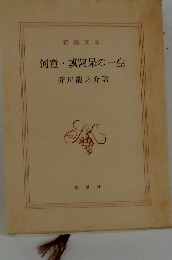 新潮文庫
河童・或阿呆の一生
芥川龍之介著
新潮社